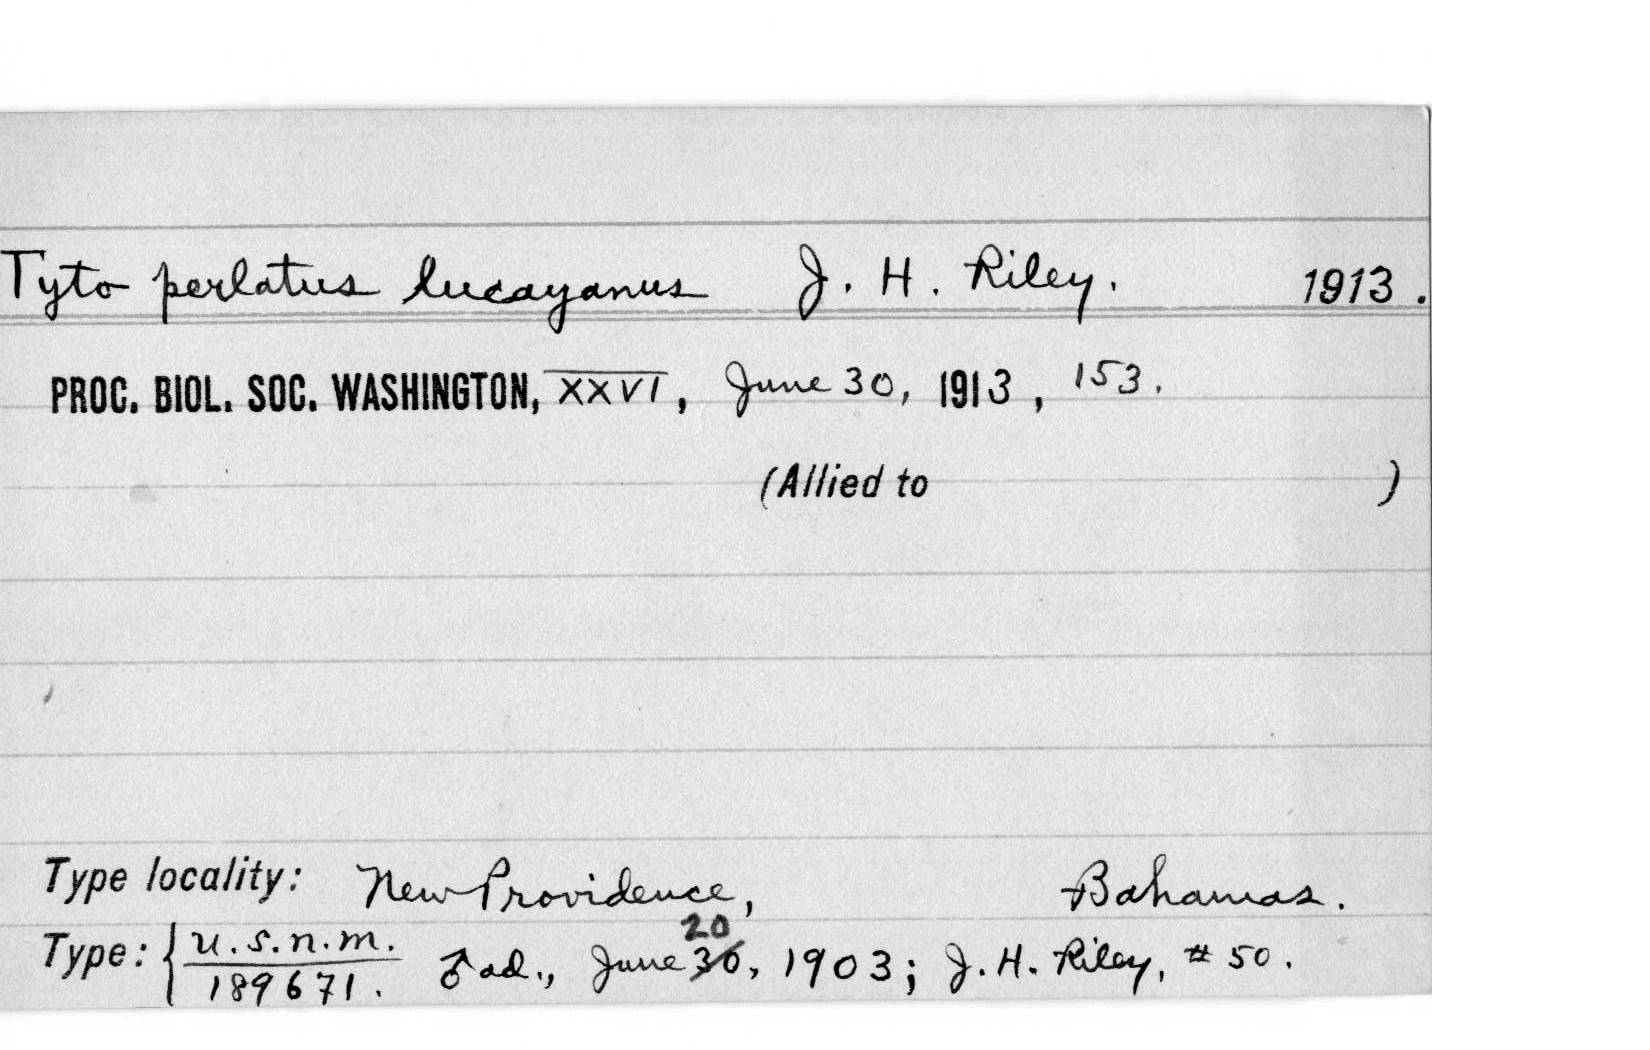 Tyto perlatus lucayanus J. H. Riley. 1913.
PROC. BIOL. SOC. WASHINGTON, XXVI, June 30, 1913, 153.
(Allied to )
Type locality: New Providence, Bahamas.
20
Type: { U.S.N.M. ♂ ad., June 30, 1903; J. H. Riley, # 50.
189671.